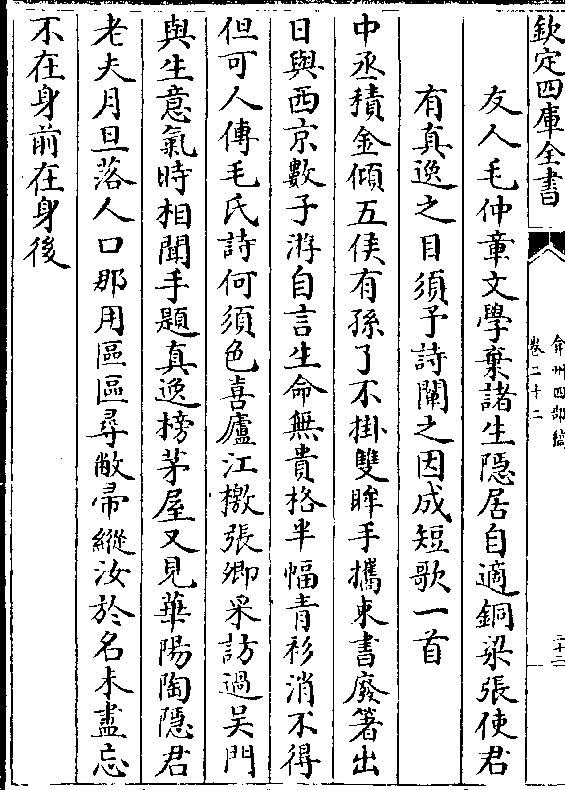 欽定四庫全書
弇州四部續
卷二十二
二十二
友人毛仲章文學棄諸生隱居自適銅梁張使君
有真逸之目須予詩闡之因成短歌一首
中丞積金傾五侯有孫了不掛雙眸手攜束書廢箸出
日與西京數子游自言生命無貴格半幅青衫消不得
但可人傳毛氏詩何須色喜廬江檄張卿采訪過吳門
與生意氣時相聞手題真逸榜茅屋又見華陽陶隱君
老夫月旦落人口那用區區尋敝帚縱汝於名未盡忘
不在身前在身後